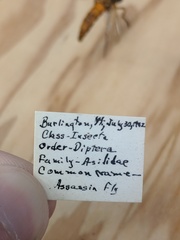 Burlington, Vt, July 30, 1982
Class-Insecta
Order-Diptera
Family-Asilidae
Common name-
Assassin Fly